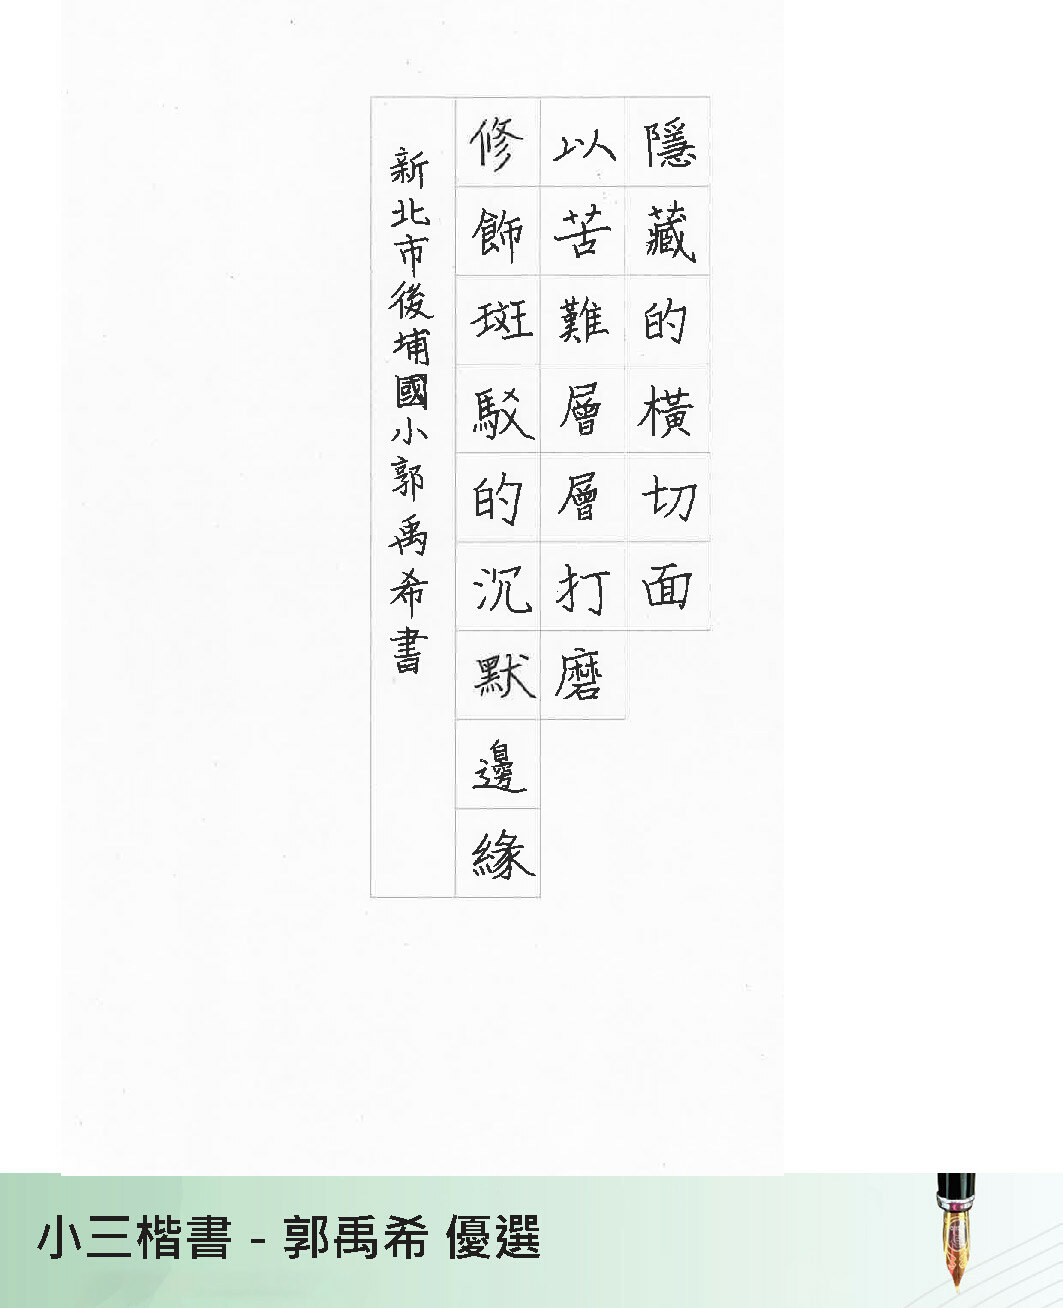 隱藏的橫切面
以苦難層層打磨
修飾斑駁的沉默邊緣
新北市後埔國小郭禹希書
小三楷書 - 郭禹希 優選